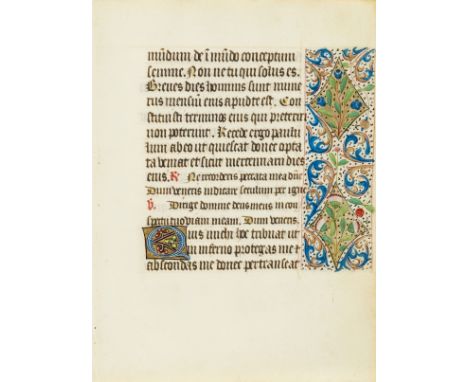 mūdum de īmūdo conceptum
semine. Non ne tu qui solus es.
Breues dies hominis sunt nume
rus mensiū eius apud te est. Con
stituisti terminos eius qui preteriri
non poterunt. Recede ergo paulu
lum ab eo ut quiescat donec opta
ta veniat et sicut mercennarii dies
eius. R Ne recorderis peccata mea dn̄e
Dum veneris iudicare seculum per ignē
v. Dirige domine deus meus in con
spectu tuo viam meam. Dum veneris.
Quis michi hoc tribuat ut
in inferno protegas me et
abscondas me donec pertranseat